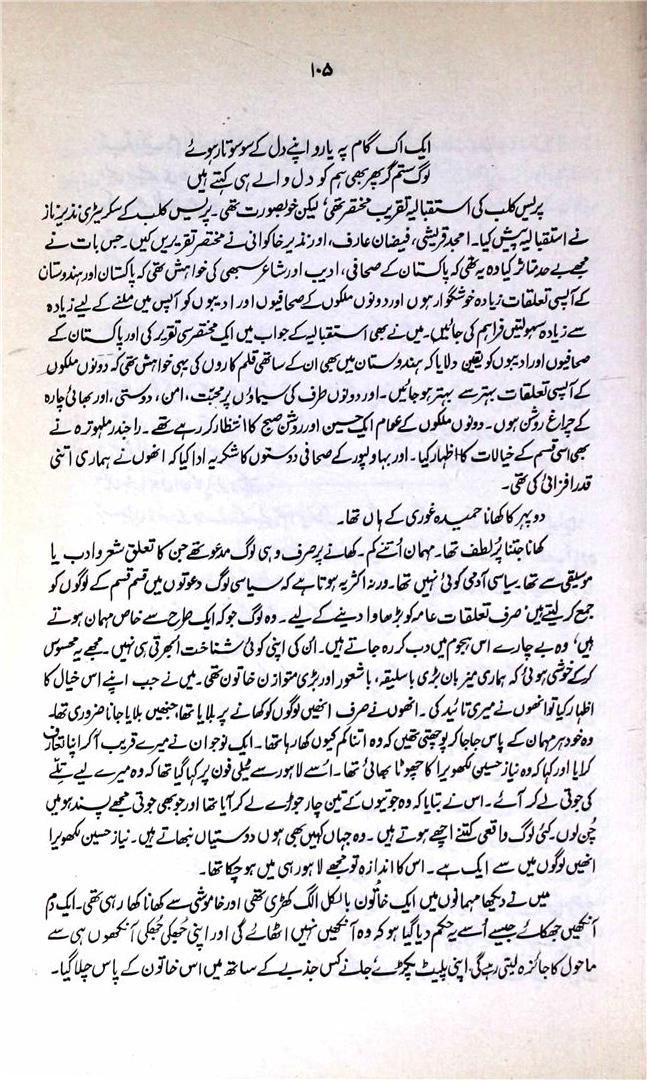 ۱۰۵
ایک اک گام پہ یارو اپنے دل کے سو سو تار ہوئے
لوگ ستم گر پھر بھی ہم کو دل والے ہی کہتے ہیں
پریس کلب کی استقبالیہ تقریب مختصر تھی، لیکن خوبصورت تھی۔ پریس کلب کے سکریٹری نذیر ناز
نے استقبالیہ پیش کیا۔ امجد قریشی، فیضان عارف، اور نذیر خاکوانی نے مختصر تقریریں کیں۔ جس بات نے
مجھے بے حد متاثر کیا وہ یہ تھی کہ پاکستان کے صحافی، ادیب اور شاعر سبھی کی خواہش تھی کہ پاکستان اور ہندوستان
کے آپسی تعلقات زیادہ خوشگوار ہوں اور دونوں ملکوں کے صحافیوں اور ادیبوں کو آپس میں ملنے کے لیے زیادہ
سے زیادہ سہولتیں فراہم کی جائیں۔ میں نے بھی استقبالیہ کے جواب میں ایک مختصر سی تقریر کی اور پاکستان کے
صحافیوں اور ادیبوں کو یقین دلایا کہ ہندوستان میں بھی ان کے ساتھی قلم کاروں کی یہی خواہش تھی کہ دونوں ملکوں
کے آپسی تعلقات بہتر سے بہتر ہو جائیں۔ اور دونوں طرف کی سیماؤں پر محبت، امن، دوستی، اور بھائی چارہ
کے چراغ روشن ہوں۔ دونوں ملکوں کے عوام ایک حسین اور روشن صبح کا انتظار کر رہے تھے۔ راجندر ملہوترہ نے
بھی اسی قسم کے خیالات کا اظہار کیا۔ اور بہاولپور کے صحافی دوستوں کا شکریہ ادا کیا کہ انھوں نے ہماری اتنی
قدر افزائی کی تھی۔
دوپہر کا کھانا حمیدہ غوری کے ہاں تھا۔
کھانا جتنا پُر لطف تھا۔ مہمان اُتنے کم۔ کھانے پر صرف وہی لوگ مدعو تھے جن کا تعلق شعر و ادب یا
موسیقی سے تھا۔ سیاسی آدمی کوئی نہیں تھا۔ ورنہ اکثر یہ ہوتا ہے کہ سیاسی لوگ دعوتوں میں قسم قسم کے لوگوں کو
جمع کر لیتے ہیں۔ صرف تعلقات عامہ کو بڑھاوا دینے کے لیے۔ وہ لوگ جو کہ ایک طرح سے خاص مہمان ہوتے
ہیں، وہ بے چارے اس ہجوم میں دب کر رہ جاتے ہیں۔ اُن کی اپنی کوئی شناخت ابھرتی ہی نہیں۔ مجھے یہ محسوس
کر کے خوشی ہوئی کہ ہماری میزبان بڑی باسلیقہ، باشعور اور بڑی متوازن خاتون تھی۔ میں نے جب اپنے اس خیال کا
اظہار کیا تو انھوں نے میری تائید کی۔ انھوں نے صرف انھیں لوگوں کو کھانے پر بلایا تھا، جنھیں بلایا جانا ضروری تھا۔
وہ خود ہر مہمان کے پاس جا جا کر پوچھتی تھیں کہ وہ اتنا کم کیوں کھا رہا تھا۔ ایک نوجوان نے میرے قریب آ کر اپنا تعارف
کرایا اور کہا کہ وہ نیاز حسین لکھویرا کا چھوٹا بھائی تھا۔ اُسے لاہور سے ٹیلی فون پر کہا گیا تھا کہ وہ میرے لیے تِلّے
کی جوتی لے کر آئے۔ اس نے بتایا کہ وہ جوتیوں کے تین چار جوڑے لے کر آیا تھا اور جو بھی جوتی مجھے پسند ہو میں
چُن لوں۔ کئی لوگ واقعی کتنے اچھے ہوتے ہیں۔ وہ جہاں کہیں بھی ہوں دوستیاں نبھاتے ہیں۔ نیاز حسین لکھویرا
انھیں لوگوں میں سے ایک ہے۔ اس کا اندازہ تو مجھے لاہور ہی میں ہو چکا تھا۔
میں نے دیکھا مہمانوں میں ایک خاتون بالکل الگ کھڑی تھی اور خاموشی سے کھانا کھا رہی تھی۔ ایک دم
آنکھیں جھکائے جیسے اُسے یہ حکم دیا گیا ہو کہ وہ آنکھیں نہیں اٹھائے گی اور اپنی جُھکی جُھکی آنکھوں ہی سے
ماحول کا جائزہ لیتی رہے گی۔ اپنی پلیٹ پکڑے جانے کس جذبے کے ساتھ میں اس خاتون کے پاس چلا گیا۔